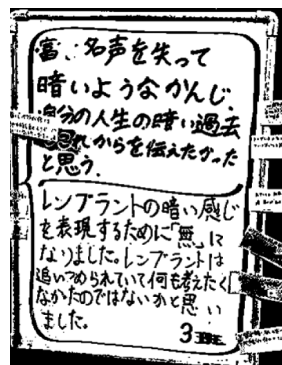 富、名声を失って
暗いようなかんじ.
自分の人生の暗い過去
これからを伝えたかった
と思う.
レンブラントの暗い感じ
を表現するために「無」に
なりました。レンブラントは
追いつめられていて何も考えたく
なかったのではないかと思い
ました。
3班